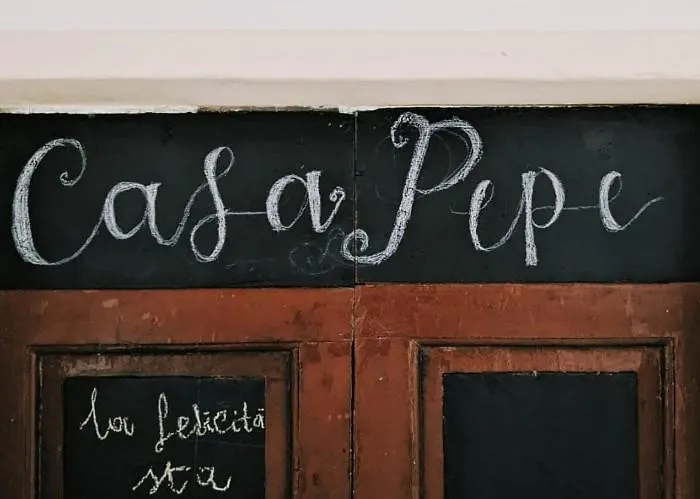 Casa Pepe
la felicità
sta